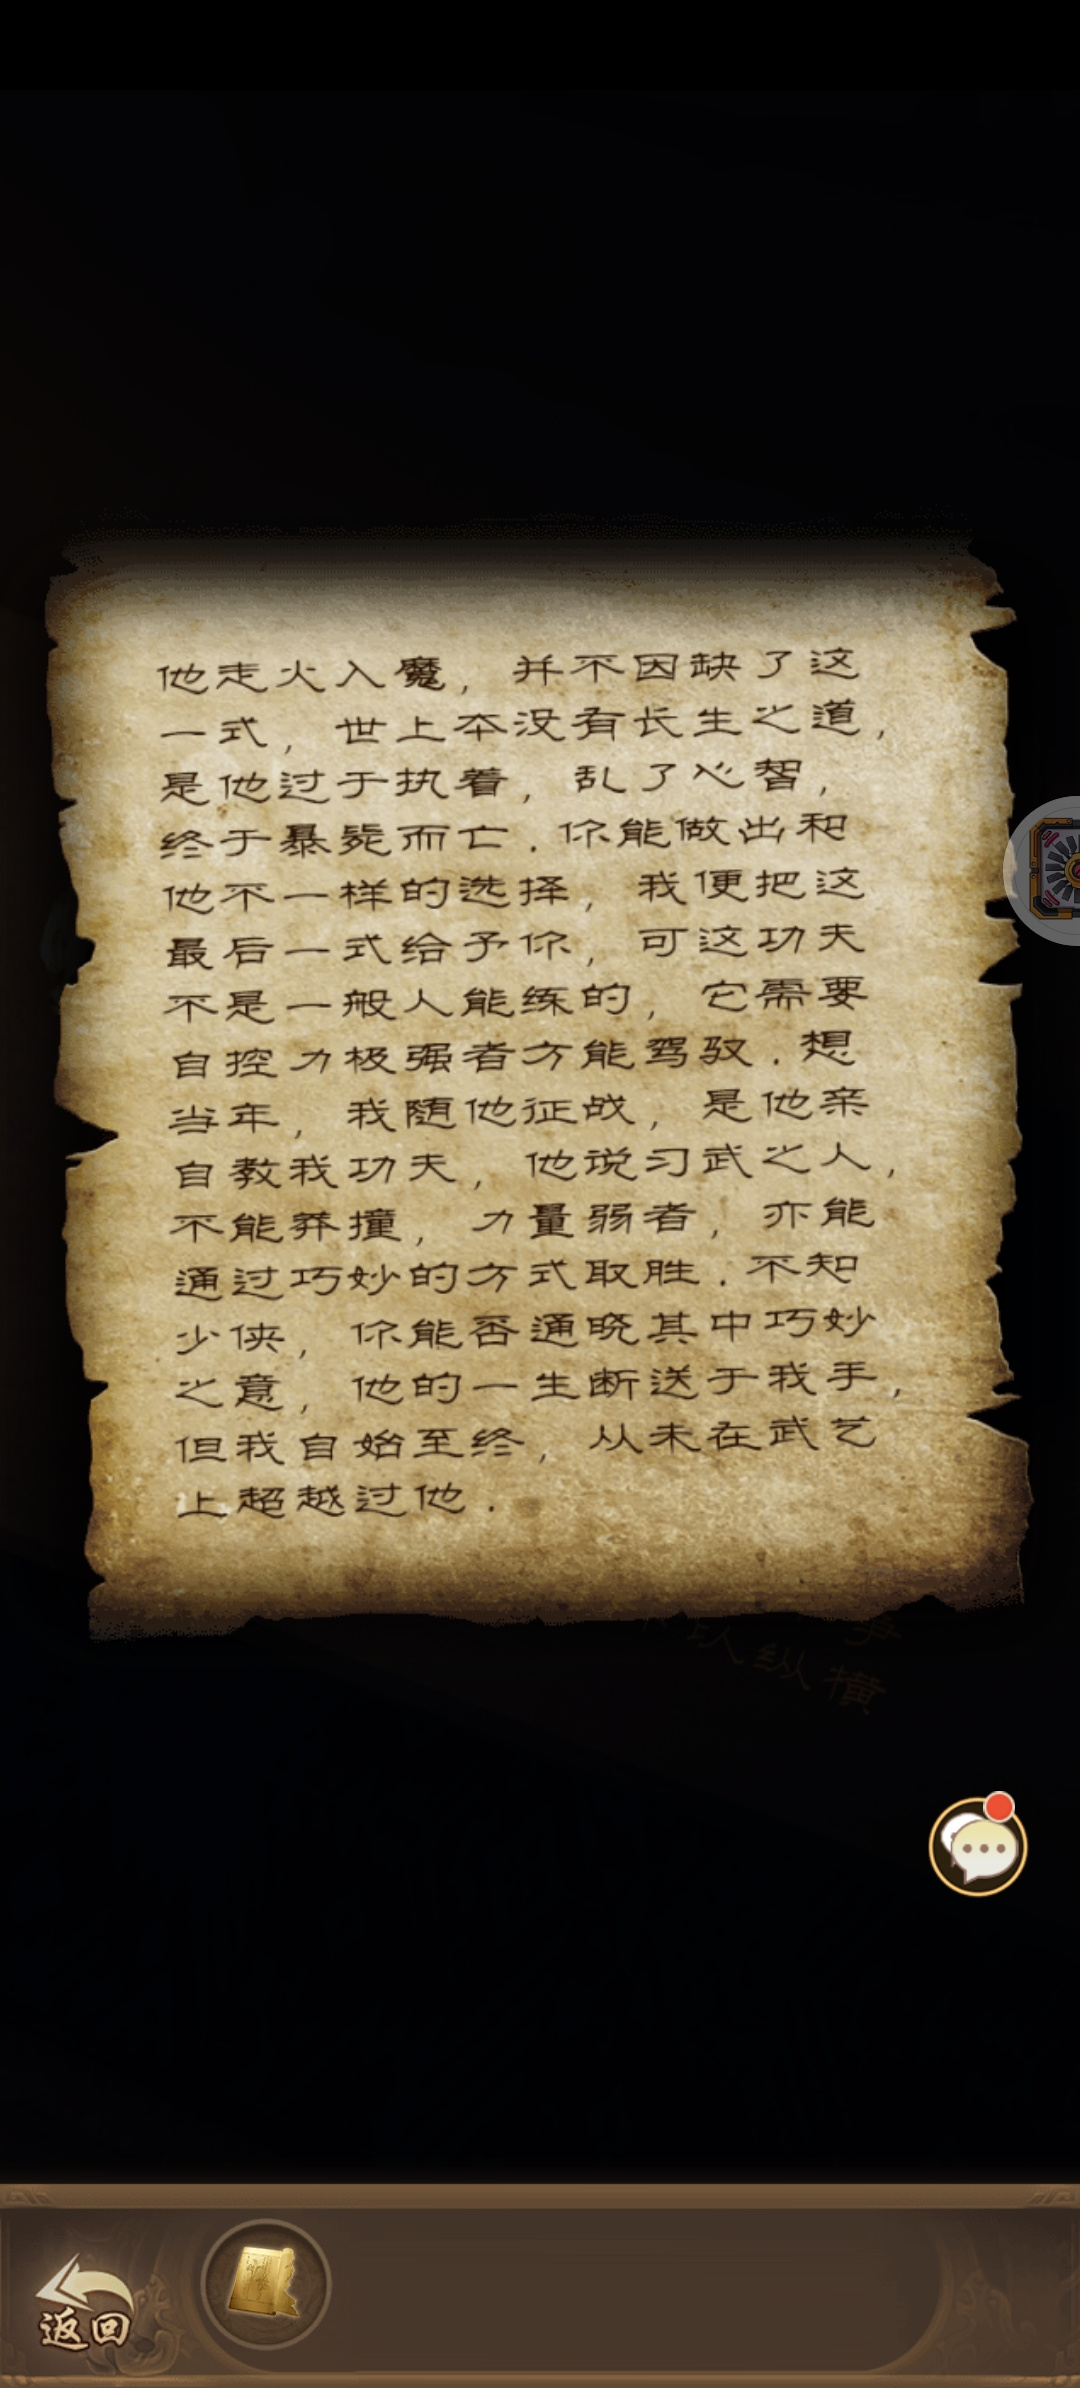 他走火入魔，并不因缺了这
一式，世上本没有长生之道，
是他过于执着，乱了心智，
终于暴毙而亡.你能做出和
他不一样的选择，我便把这
最后一式给予你，可这功夫
不是一般人能练的，它需要
自控力极强者方能驾驭.想
当年，我随他征战，是他亲
自教我功夫，他说习武之人，
不能莽撞，力量弱者，亦能
通过巧妙的方式取胜.不知
少侠，你能否通晓其中巧妙
之意，他的一生断送于我手，
但我自始至终，从未在武艺
上超越过他.
纵横
返回